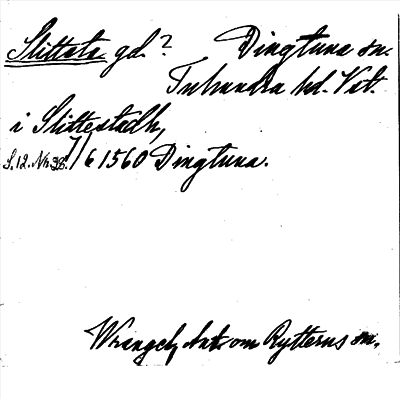 Slittsta. gd.? Dingtuna sn.
Tuhundra hd. Vstl.
i Slittestadh,
S. 12. Nr. 38. 7/6 1560 Dingtuna.
Wrangel, Ant. om Rytterns sn.